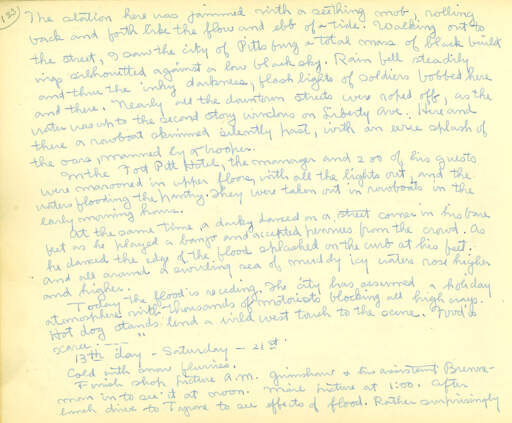 133
The station here was jammed with a seething mob, rolling
back and forth like the flow and ebb of a tide. Walking out to
the street, I saw the city of Pittsburg a total mass of black build
ings silhouitted against a low black sky. Rain fell steadily
and thru the inky darkness, flash lights of soldiers bobbed here
and there. Nearly all the downtown streets were roped off, as the
water was up to the second story windows on Liberty Ave. Here and
there a rowboat skimmed silently past, with an eerie splash of
the oars, manned by a trooper.
In the Fort Pitt Hotel, the manager and 200 of his guests
were marooned in upper floors, with all the lights out, and the
waters flooding the pantry. They were taken out in rowboats in the
early morning hours.
At the same time, a darky danced on a street corner in his bare
feet as he played a banjo and accepted pennies from the crowd. As
he danced the edge of the flood splashed on the curb at his feet.
and all around a swirling sea of muddy icy waters rose higher
and higher.
Today the flood is receding. The city has assumed a holiday
atmosphere with thousands of motorists blocking all high ways.
Hot dog stands lend a wild west touch to the scene. Food is
scarce. ---- "
13th day - Saturday - 21st.
Cold with snow flurries.
Finish shop picture A.M. Grimshaw & his assistant
man in to see it at noon. Mine picture at 1:00. After
lunch drive to to see effects of flood. Rather surprisingly